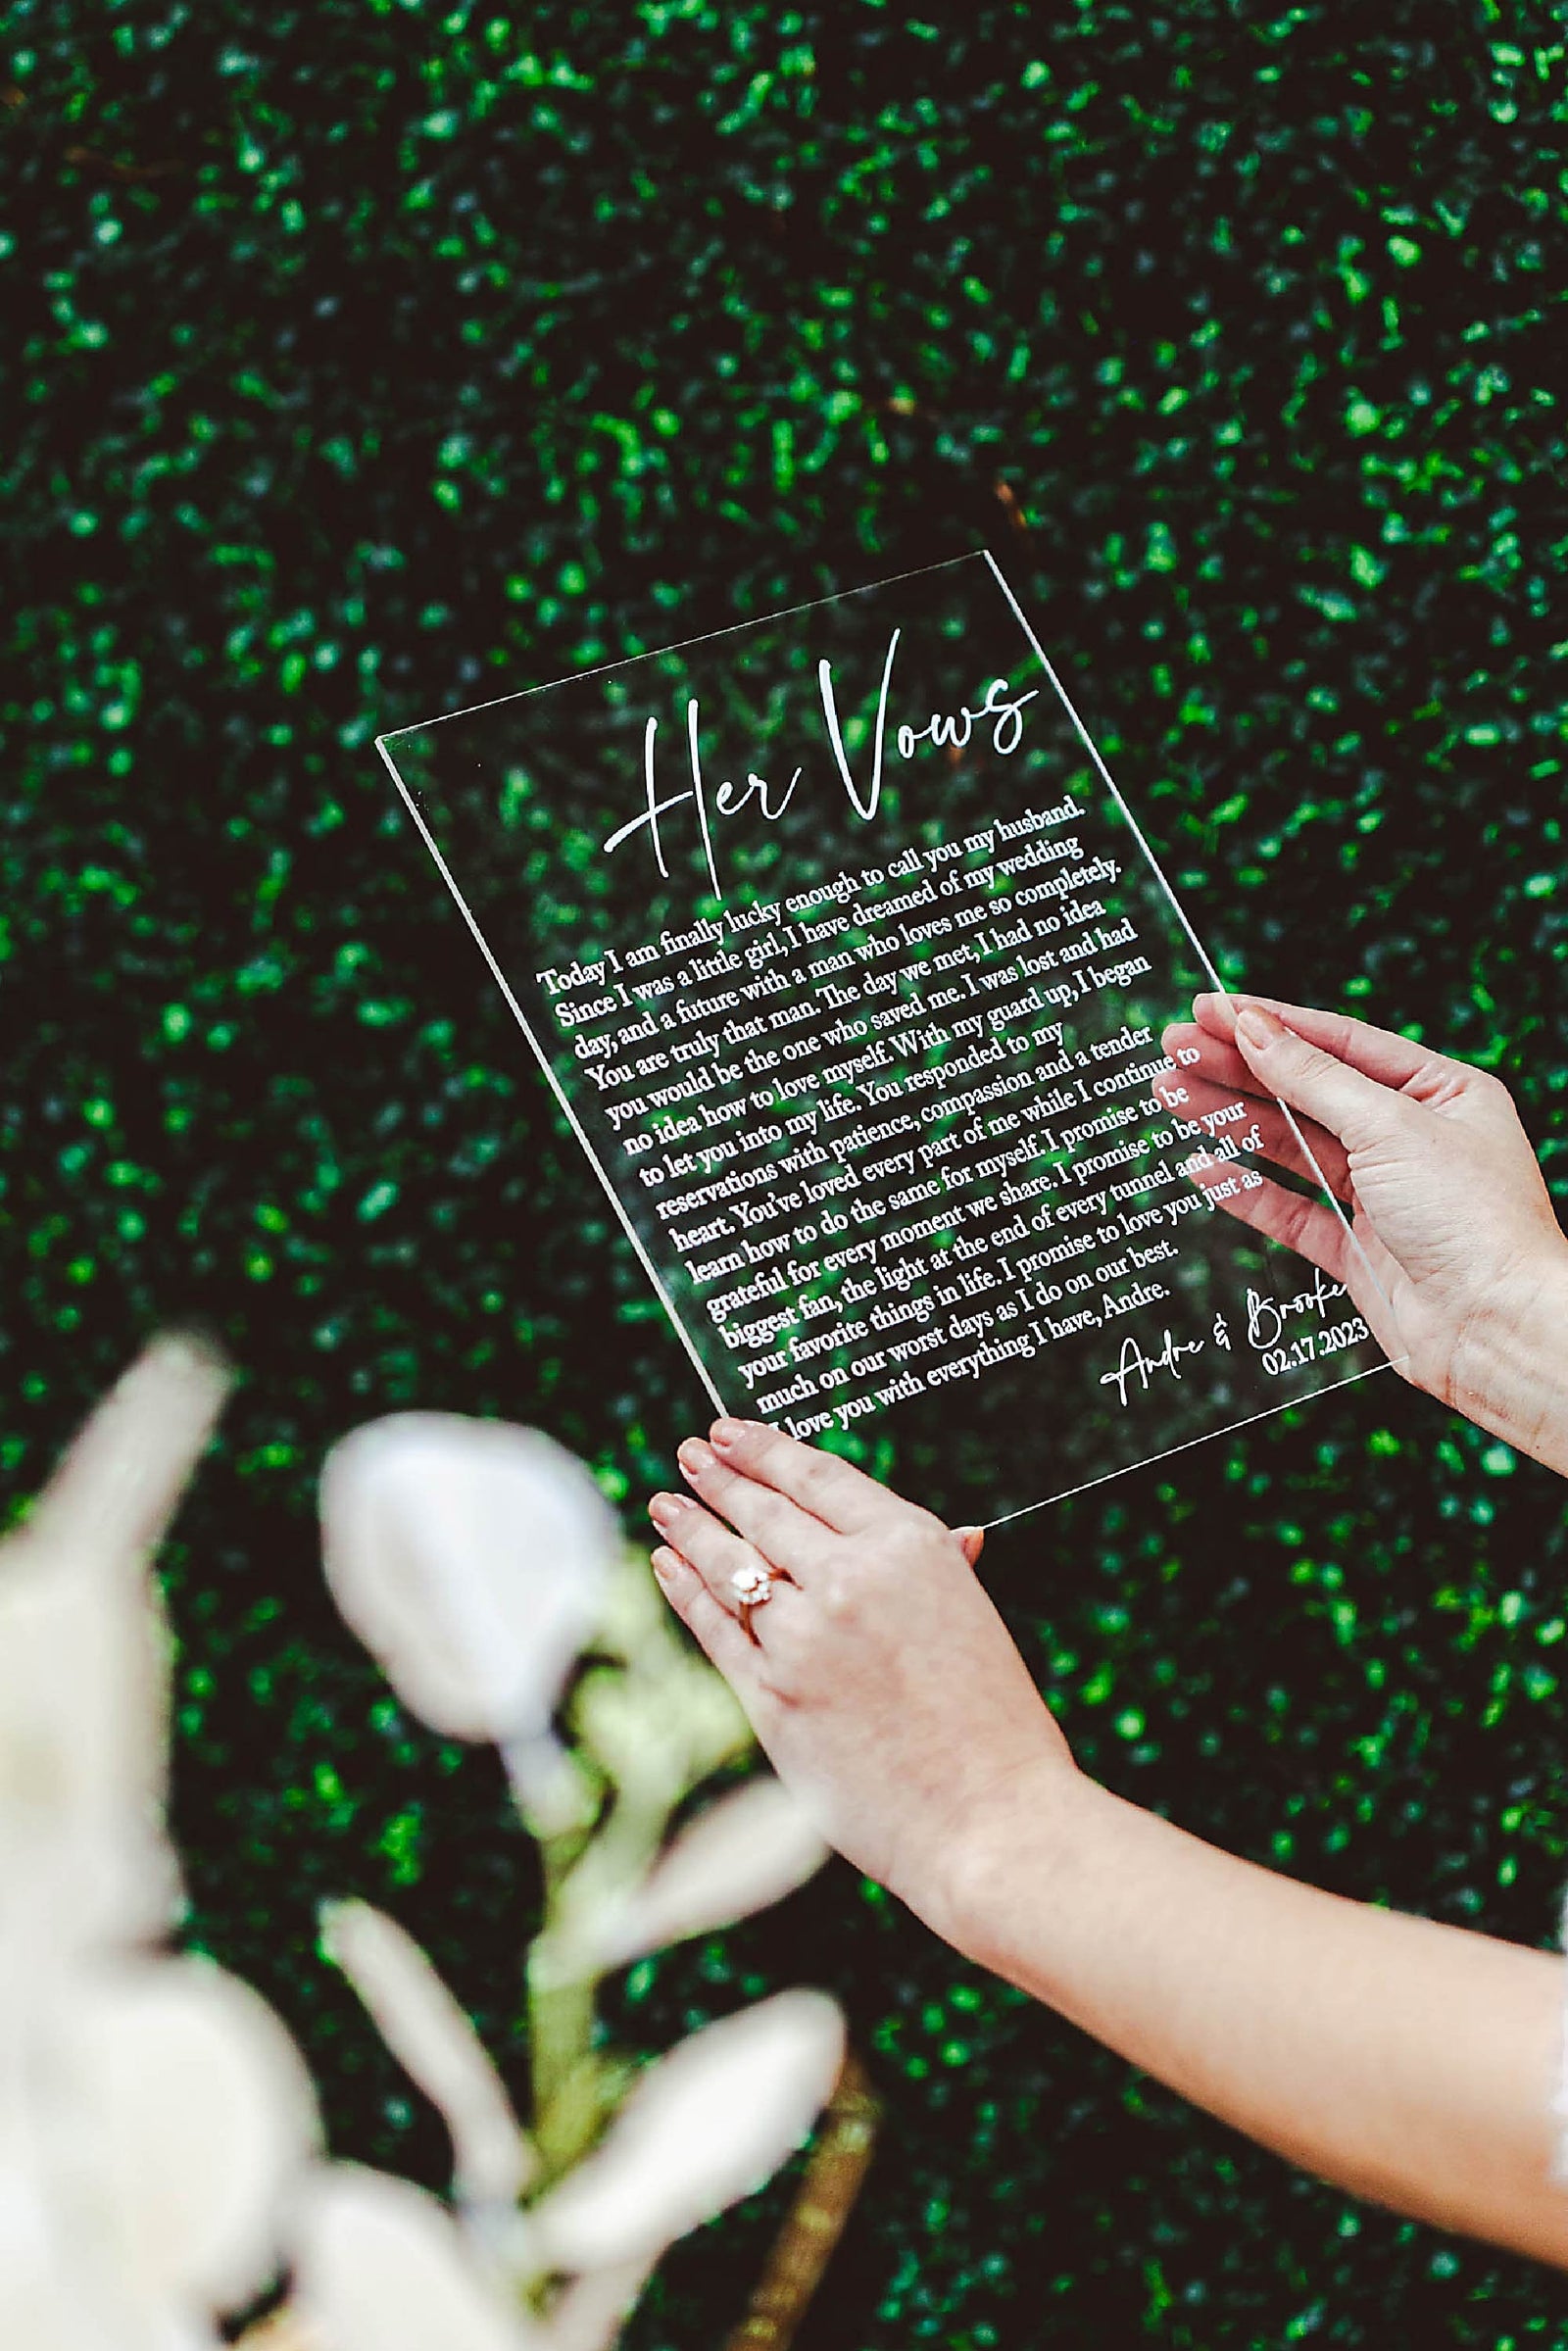 Her Vows
Today I am finally lucky enough to call you my husband.
Since I was a little girl, I have dreamed of my wedding
day, and a future with a man who loves me so completely.
You are truly that man. The day we met, I had no idea
you would be the one who saved me. I was lost and had
no idea how to love myself. With my guard up, I began
to let you into my life. You responded to my
reservations with patience, compassion and a tender
heart. You've loved every part of me while I continue to
learn how to do the same for myself. I promise to be
grateful for every moment we share. I promise to be your
biggest fan, the light at the end of every tunnel and all of
your favorite things in life. I promise to love you just as
much on our worst days as I do on our best.
I love you with everything I have, Andre.
Andre & Brooke
02.17.2023